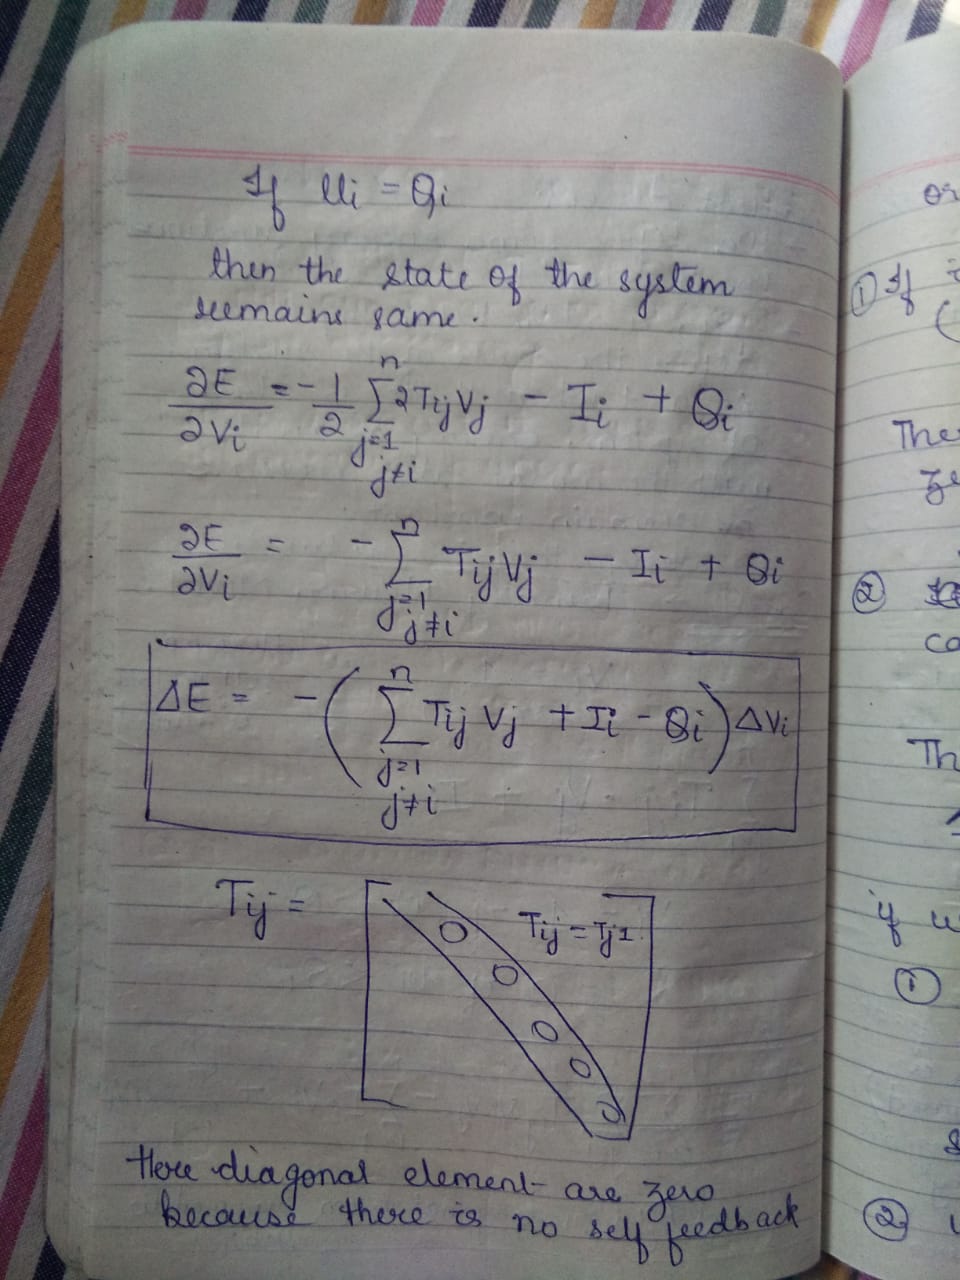 If Ui = Qi
then the state of the system
remains same.
∂E/∂Vi = -1/2 n∑j=1 j≠i 2TijVj - Ii + Qi
∂E/∂Vi = - n∑j=1 j≠i TijVj - Ii + Qi
ΔE = - ( n∑j=1 j≠i Tij Vj + Ii - Qi ) ΔVi
Tij = [ 0 0 0 0 0 Tij = Tji ]
Here diagonal element are zero
because there is no self feedback
or
① If
(
The
ze
②
co
Th
if w
①
②